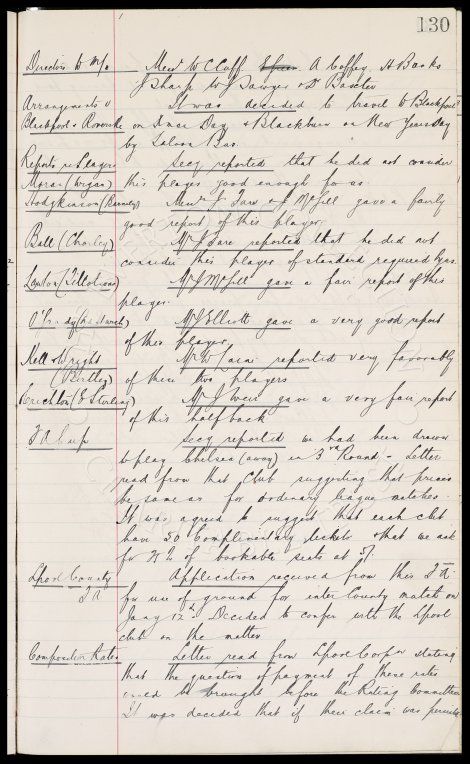 130
Directors to M/c Messrs W C Cuff Green A Coffey H Banks
J Sharp W J Sawyer & Dr Baxter
Arrangements v It was decided to travel to Blackpool
Blackpool & Rovers on Xmas Day & Blackburn on New Years Day
by Saloon Bus.
Reports re Players Secy reported that he did not consider
Moran (Wigan) this player good enough for us.
Hodgkinson ( Messrs J Fare & J McGill gave a fairly
good report of this player
Ball (Chorley) Mr J Fare reported that he did not
consider this player of standard required by us.
(Tillotsons) Mr J McGill gave a fair report of this
player.
O'Grady Mr J Elliott gave a very good report
of this player
Kell & Wright Mr W reported very favorably
(Birtley) of these two players
Crichton (E Stirling) Mr J gave a very fair report
of this half back
F A Cup Secy reported we had been drawn
to play Chelsea (away) in 3rd Round - Letter
read from that Club suggesting that prices
be same as for ordinary league matches.
It was agreed to suggest that each club
have 50 Complimentary tickets & that we ask
for of bookable seats at 5/-
Lpool County Application received from this
F A for use of ground for inter County match on
Jany 12th. Decided to confer with the Lpool
club on the matter
Composition Rates Letter read from Lpool Corpn stating
that the question of payment of these rates
be brought before the Rating Committee
It was decided that if their claim was